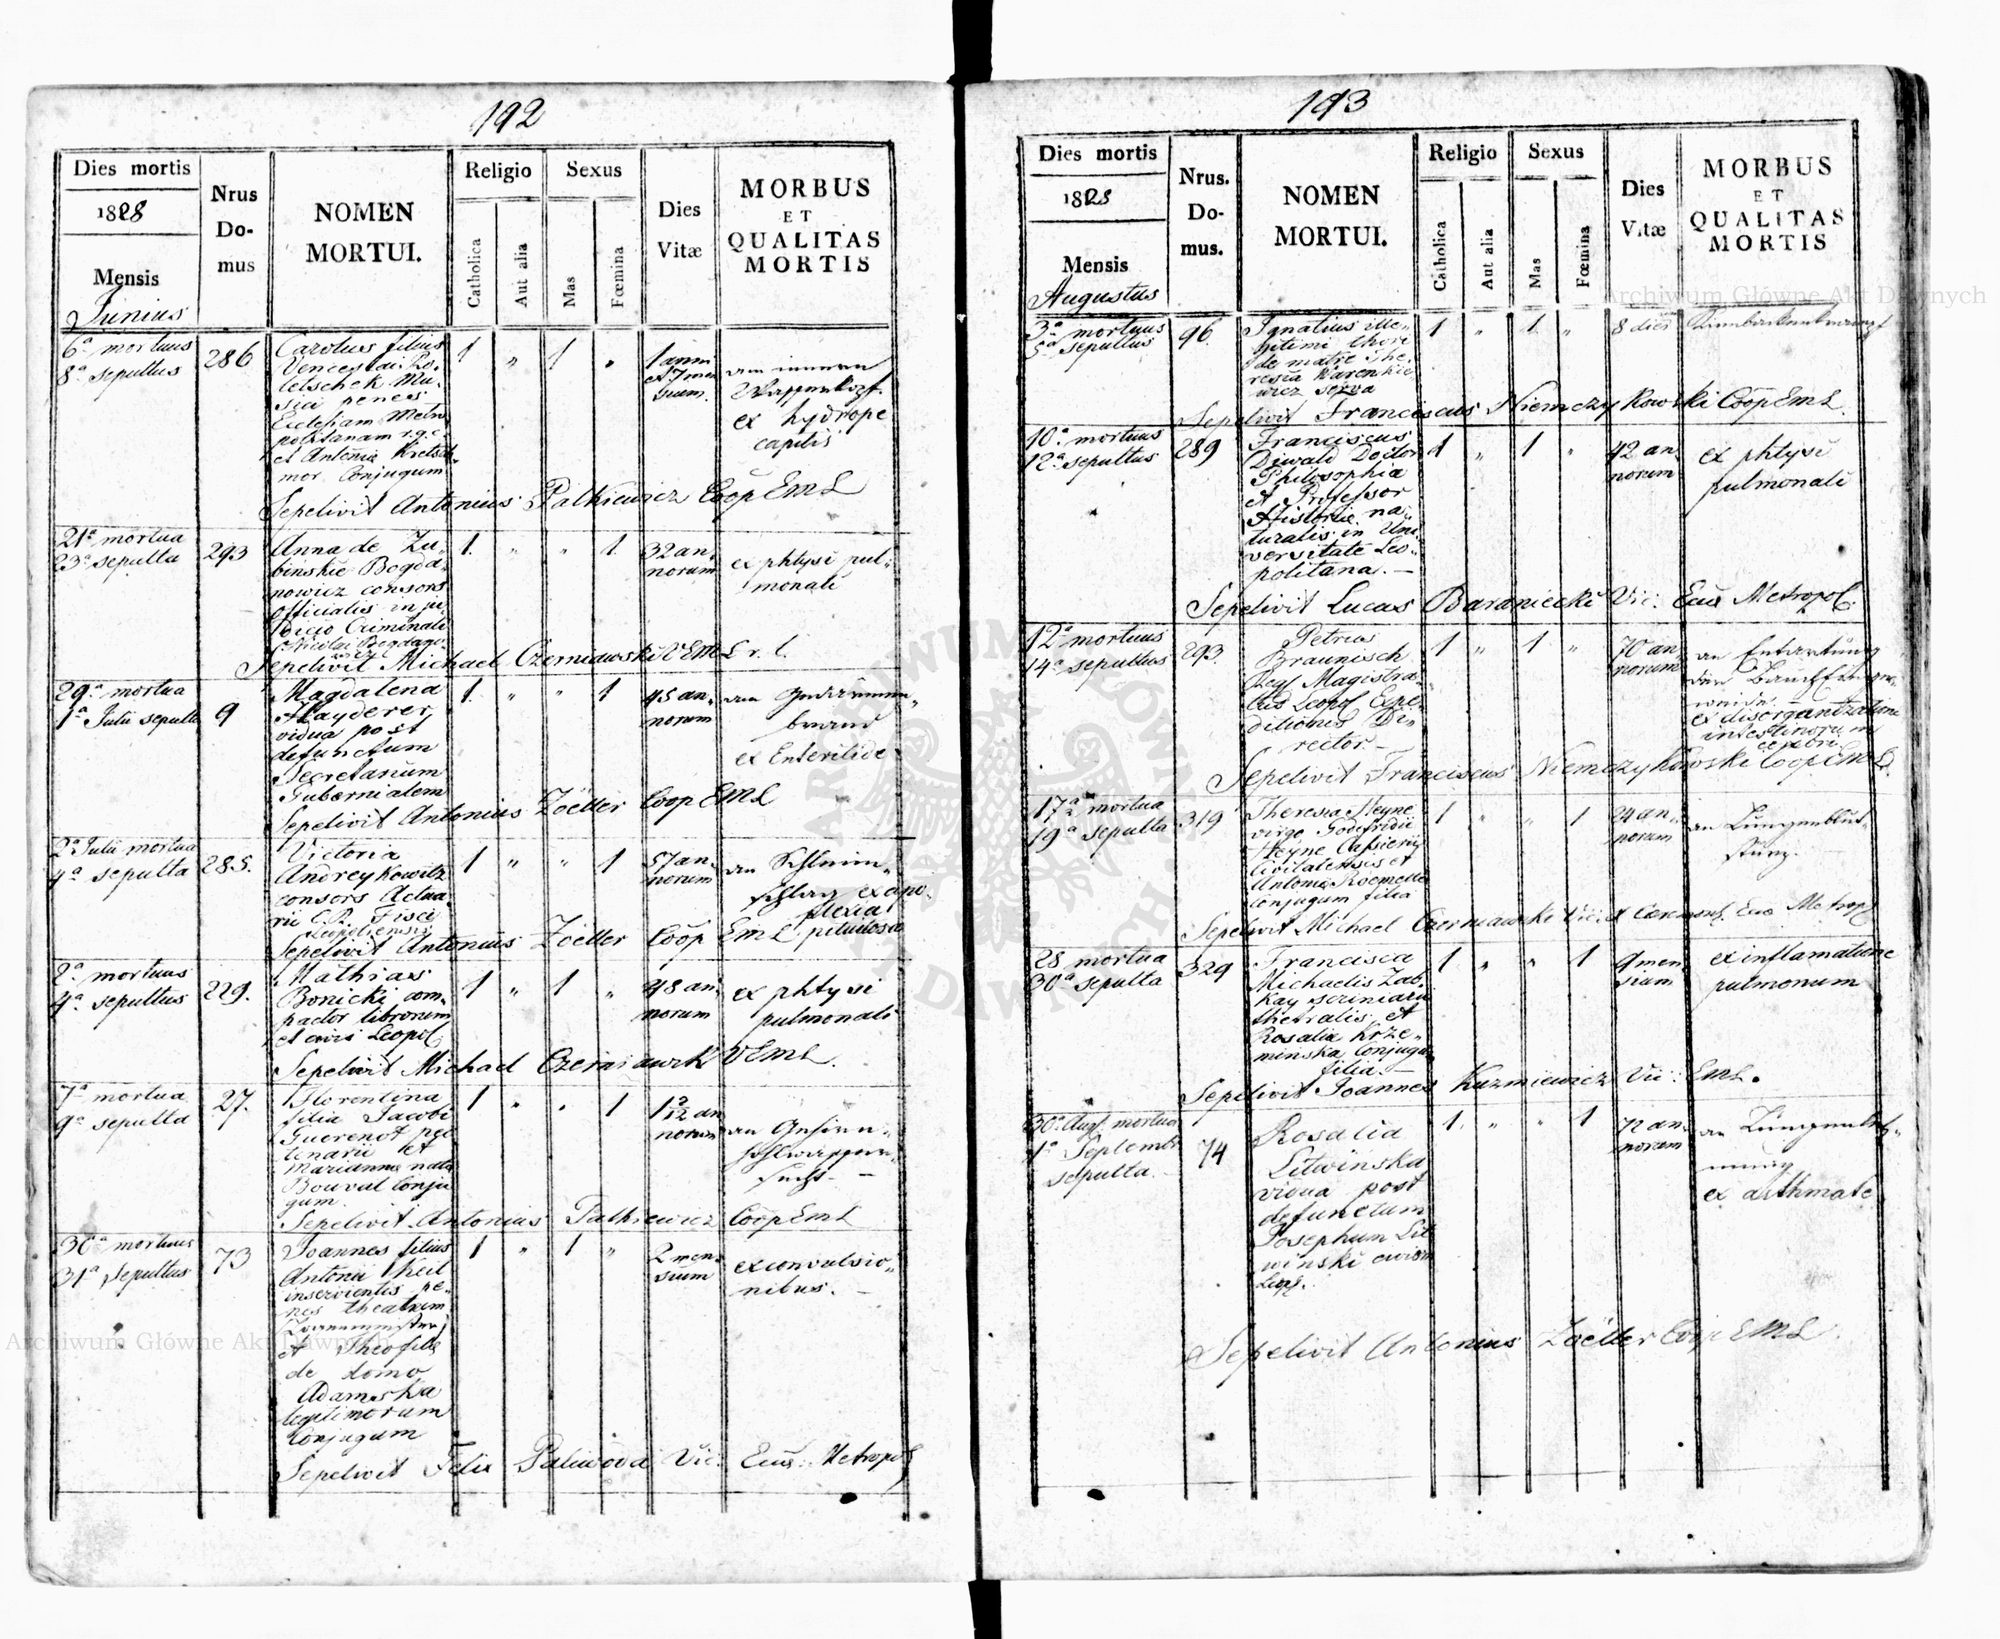 192
Dies mortis
1828
Mensis
Junius
Nrus
Do-
mus
NOMEN
MORTUI.
Religio
Catholica
Aut alia
Sexus
Mas
Fœmina
Dies
Vitæ
MORBUS
ET
QUALITAS
MORTIS
6ª mortuus
8ª sepultus
286
Carolus filius
Venceslai Ro-
letschek Mu-
sici penes
Ecclesiam Metro
politanam r.g.c.
et Antonia Kretsch-
mer Conjugum
1 " 1 "
1 anni
et 7 men
sium.
am innern
Wasserkopf.
ex hydrope
capitis
Sepelivit Antonius Palkiewicz Coop EML
21ª mortua
23ª sepulta
293
Anna de Zu-
binskie Bogda-
nowicz consors
officialis in ju-
dicio Criminali
Nicolai Bogdano-
wicz
1. " " 1.
32 an-
norum
ex phtysi pul-
monali
Sepelivit Michael Czerniawski VEML r. l.
29ª mortua
1ª Julii sepulta
9
Magdalena
Mayderer
vidua post
defunctum
Secretarium
Gubernialem
1. " " 1
45 an-
norum
am Gedärmen-
brand
ex Enteritide
Sepelivit Antonius Zoëller Coop EML
2ª Julii mortua
4ª sepulta
285.
Victoria
Andreykowitz
consors Actua-
rii C.R. Fisci
Leopoliensis
1 " " 1
57 an-
norum
am Schleim-
schlag ex apo-
plexia
pituitosa
Sepelivit Antonius Zoëller Coop EML
2ª mortuus
4ª sepultus
229.
Mathias
Bonicki com-
pactor librorum
et civis Leopol
1 " 1 "
48 an-
norum
ex phtysi
pulmonali
Sepelivit Michael Czerniawski VEML.
7ª mortua
9ª sepulta
27.
Florentina
filia Jacobi
Guerenot pec
tenarii et
Mariannæ nata
Bouval Conju
gum.
1 " " 1
1 2/12 an
norum
an Gehirn-
höhlwasser-
sucht
Sepelivit Antonius Palkiewicz Coop EML
30ª mortuus
31ª Sepultus
73
Joannes filius
Antonii Keil
inservientis pe-
nes theatrum
et Theofila
de domo
Adamska
legitimorum
Conjugum
1 " 1 "
2 men-
sium
ex convulsio-
nibus.
Sepelivit Felix Paliwoda Vic. Ecæ. Metropol
193
Dies mortis
1828
Mensis
Augustus
Nrus.
Do-
mus.
NOMEN
MORTUI.
Religio
Catholica
Aut alia
Sexus
Mas
Fœmina
Dies
Vitæ
MORBUS
ET
QUALITAS
MORTIS
3ª mortuus
5ª sepultus
96.
Ignatius ille-
gitimi thori
de matre The-
resia Warenkie-
wicz serva
1 " 1. "
8 dies
Kinnbackenkrampf
Sepelivit Franciscus Niemczykowski Coop EML.
10ª mortuus
12ª sepultus
289
Franciscus
Diwald Doctor
Philosophia
et Professor
Historiæ na-
turalis in Uni-
versitate Leo-
politana.
1 " 1 "
42 an-
norum
ex phtysi
pulmonali
Sepelivit Lucas Baraniecki Vic: Ecæ Metropol.
12ª mortuus
14ª sepultus
293.
Petrus
Braunisch
Reg. Magistra-
tus Leopol Expe-
ditionis Di-
rector.
1 " 1 "
70 an-
norum
an Entartung
der Baucheinge-
weide.
ex disorganizatione
intestinorum
Sepelivit Franciscus Niemczykowski Coop EML.
17ª mortua
19ª sepulta
319
Theresia Heyne
virgo Godefridii
Heyne Cassierii
Civitatensis et
Antonia Roemelle
Conjugum filia
1 " " 1
24 an-
norum
an Lungenblut-
sturz.
Sepelivit Michael Czerniawski Vic. et Cæremon. Ecæ Metropol
28 mortua
30ª sepulta
329
Francisca
Michaelis Zab-
kay scriniarii
theatralis et
Rosalia Krze-
minska Conjugum
filia.
1 " " 1
9 men-
sium
ex inflamatione
pulmonum
Sepelivit Joannes Kuzmiewicz Vic: EML.
30ª Aug. mortua
1ª Septembr
sepulta.
74
Rosalia
Litwinska
vidua post
defunctum
Josephum Lit
winski civem
Leop.
1. " " 1
72 an-
norum
an Lungenläh-
mung
ex asthmate
Sepelivit Antonius Zoëller Coop EML.
Archiwum Główne Akt Dawnych
Archiwum Główne Akt Dawnych
ARCHIWUM GŁÓWNE AKT DAWNYCH